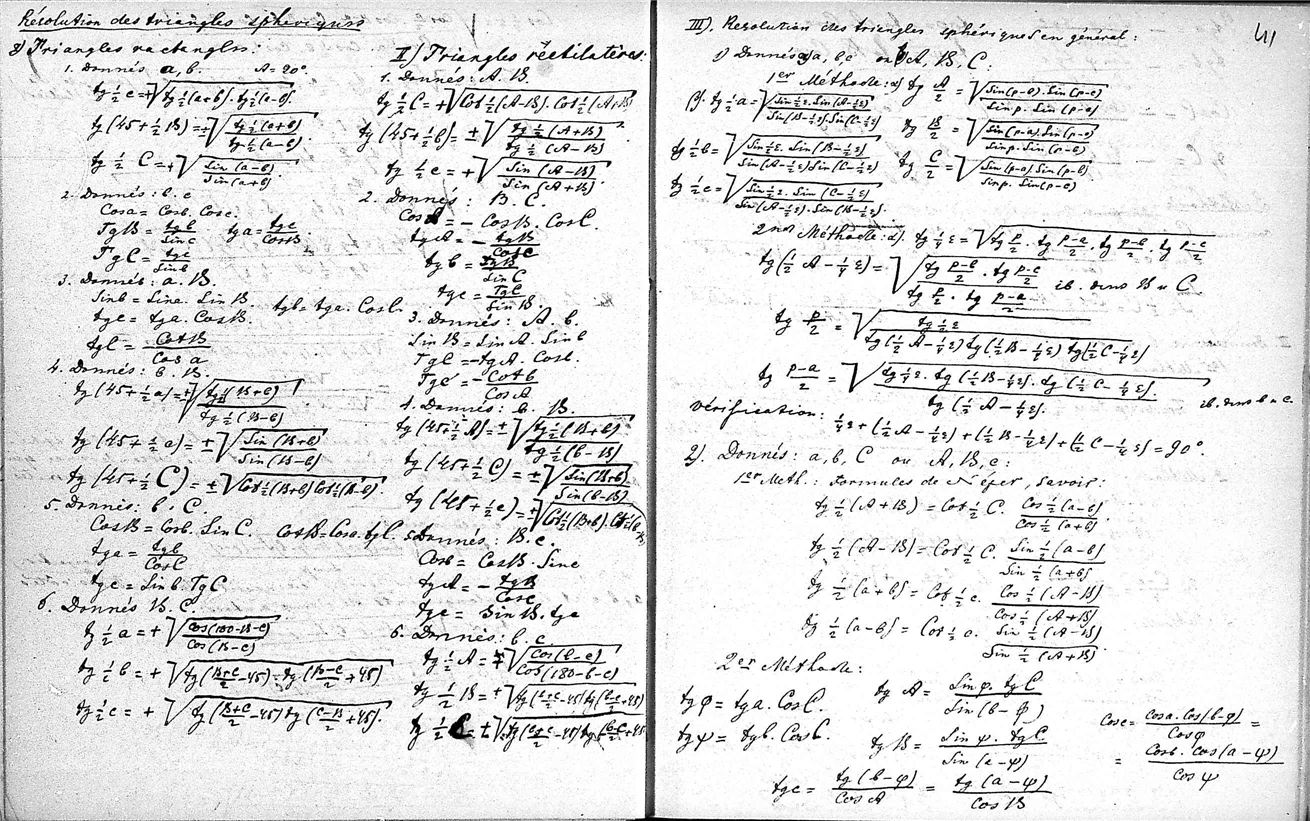 Résolution des triangles sphériques
I) Triangles rectangles:
1. Donnés a, b. A = 90°.
tg ½ c = +√(tg ½ (a+b) . tg ½ (a-b)).
tg (45 + ½ B) = ±√(tg ½ (a+b) / tg ½ (a-b)).
tg ½ C = +√(Sin (a-b) / Sin (a+b)).
2. Donnés: b. c
Cos a = Cos b. Cos c.
Tg B = tg b / Sin c tg a = tg c / Cos B
Tg C = tg c / Sin b
3. Donnés: a. B.
Sin b = Sin a. Sin B. tg b = tg a. Cos C.
tg c = tg a. Cos B.
tg C = Cot B / Cos a
4. Donnés: b. B.
tg (45 + ½ a) = ±√(tg ½ (B+b) / tg ½ (B-b))
tg (45 + ½ c) = ±√(Sin (B+b) / Sin (B-b))
tg (45 + ½ C) = ±√(Cot ½ (B+b) Cot ½ (B-b)).
5. Donnés: b. C
Cos B = Cos b. Sin C. Cos B = Cos a. tg C.
tg a = tg b / Cos C
tg c = Sin b. Tg C
6. Donnés B. C.
tg ½ a = +√(Cos (180-B-C) / Cos (B-C))
tg ½ b = +√(tg (B+C / 2 - 45) . tg (B-C / 2 + 45))
tg ½ c = +√(tg (B+C / 2 - 45) tg (C-B / 2 + 45).
II) Triangles rectilatères:
1. Donnés: A. B.
tg ½ C = +√(Cot ½ (A-B). Cot ½ (A+B)
tg (45 + ½ b) = ±√(tg ½ (A+B) / tg ½ (A-B)
tg ½ c = +√(Sin (A-B) / Sin (A+B)).
2. Donnés: B. C.
Cos A = - Cos B. Cos C.
tg A = - tg B / Cos c
tg b = Tg B / Sin C
tg c = Tg C / Sin B.
3. Donnés: A. b.
Sin B = Sin A. Sin b
Tg C = -tg A. Cos b.
Tg c = - Cot b / Cos A
4. Donnés: b. B.
tg (45 + ½ A) = ±√(tg ½ (B+b) / tg ½ (b-B)
tg (45 + ½ C) = ±√(Sin (B+b) / Sin (b-B)
tg (45 + ½ c) = ±√(Cot ½ (B+b). Cot ½ (b-B)
5. Donnés: B. c.
Cos b = Cos B. Sin c
tg A = - tg B / Cos c
Tg C = Sin B. tg c
6. Donnés: b. c
tg ½ A = +√(Cos (b-c) / Cos (180-b-c)
tg ½ B = +√(tg (b+c / 2 - 45) tg (b-c / 2 + 45)
tg ½ C = +√(tg (b+c / 2 - 45) tg (b-c / 2 + 45
41
III). Resolution des triangles sphériques en général:
1) Donnés a) a, b, c ou b) A, B, C.
1er Méthode: α) tg A/2 = √(Sin (p-b). Sin (p-c) / Sin p. Sin (p-a)
β). tg ½ a = √(Sin ½ ε. Sin (A-½ ε) / Sin (B-½ ε). Sin (C-½ ε) tg B/2 = √(Sin (p-a). Sin (p-c) / Sin p. Sin (p-b)
tg ½ b = √(Sin ½ ε. Sin (B-½ ε) / Sin (A-½ ε) Sin (C-½ ε) tg C/2 = √(Sin (p-a). Sin (p-b) / Sin p. Sin (p-c)
tg ½ c = √(Sin ½ ε. Sin (C-½ ε) / Sin (A-½ ε). Sin (B-½ ε).
2nd Méthode: α). tg ¼ ε = √(tg p/2 . tg p-a/2 . tg p-b/2 . tg p-c/2
tg (½ A - ¼ ε) = √(tg p-b/2 . tg p-c/2 / tg p/2 . tg p-a/2 ib. dens B u C
tg p/2 = √(tg ¼ ε / tg (½ A - ¼ ε) tg (½ B - ¼ ε) tg (½ C - ¼ ε)
tg p-a/2 = √(tg ¼ ε. tg (½ B - ¼ ε). tg (½ C - ¼ ε). / tg (½ A - ¼ ε). ib. dens b u c.
Vérification: ¼ ε + (½ A - ¼ ε) + (½ B - ¼ ε) + (½ C - ¼ ε) = 90°.
2). Donnés: a, b, C ou A, B, c:
1er Meth.: Formules de Néper, Savoir:
tg ½ (A+B) = Cot ½ C. Cos ½ (a-b) / Cos ½ (a+b)
tg ½ (A-B) = Cot ½ C. Sin ½ (a-b) / Sin ½ (a+b)
tg ½ (a+b) = Cot ½ c. Cos ½ (A-B) / Cos ½ (A+B)
tg ½ (a-b) = Cot ½ c. Sin ½ (A-B) / Sin ½ (A+B)
2er Méthode:
tg φ = tg a. Cos C. tg A = Sin φ. tg C / Sin (b-φ)
tg ψ = tg b. Cos C. tg B = Sin ψ. tg C / Sin (a-ψ)
tg c = tg (b-φ) / Cos A = tg (a-ψ) / Cos B
Cos c = Cos a. Cos (b-φ) / Cos φ =
= Cos b. Cos (a-ψ) / Cos ψ